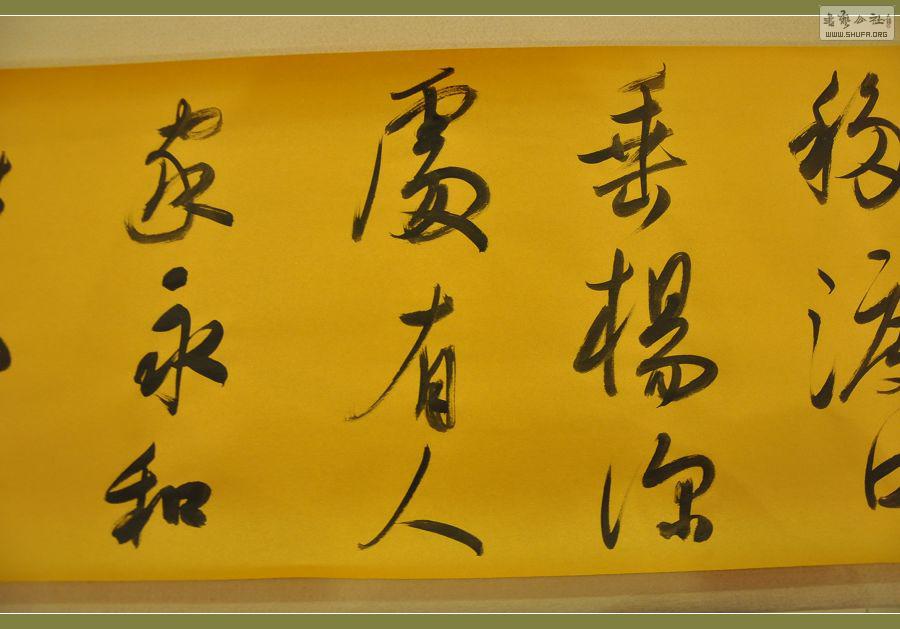 移渡口
垂楊深
處有人
家永和
書艺公社
WWW.SHUFA.ORG